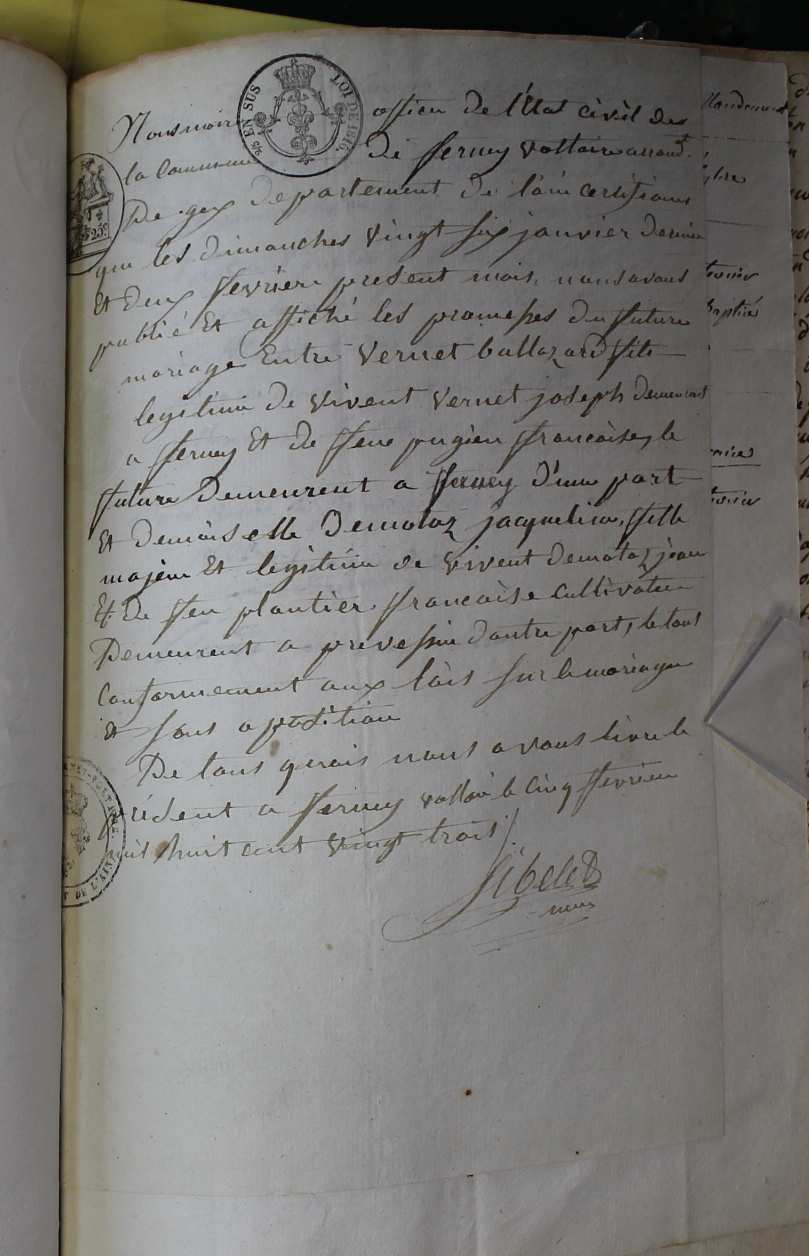 ⅌ EN SUS LOI DE 1816.
Nous maire officier de l'État civil des
la Commune de ferney voltaire arrond.t
De gex departement de l'ain certifions
que les dimanches vingt six janvier dernier
Et deux fevrier present mois, nous avons
publié Et affiché les promesses du future
mariage Entre Vernet baltazard fils
legitime de vivent vernet joseph demeurent
a ferney Et de feue pugien francoise, le
future Demeurent a ferney d'une part
Et demoiselle Demotaz jacqueline, fille
majeure Et legitime de vivent demotaz jean
Et de feu plantier francoise cultivateur
Demeurent a prevessin d'autre part, le tout
Conformement aux lois sur le mariage
& sans oposition
De tous quoi nous avons livré le
présent a ferney voltaire le cinq fevrier
mil huit cent vingt trois
maire
DE L'AIN